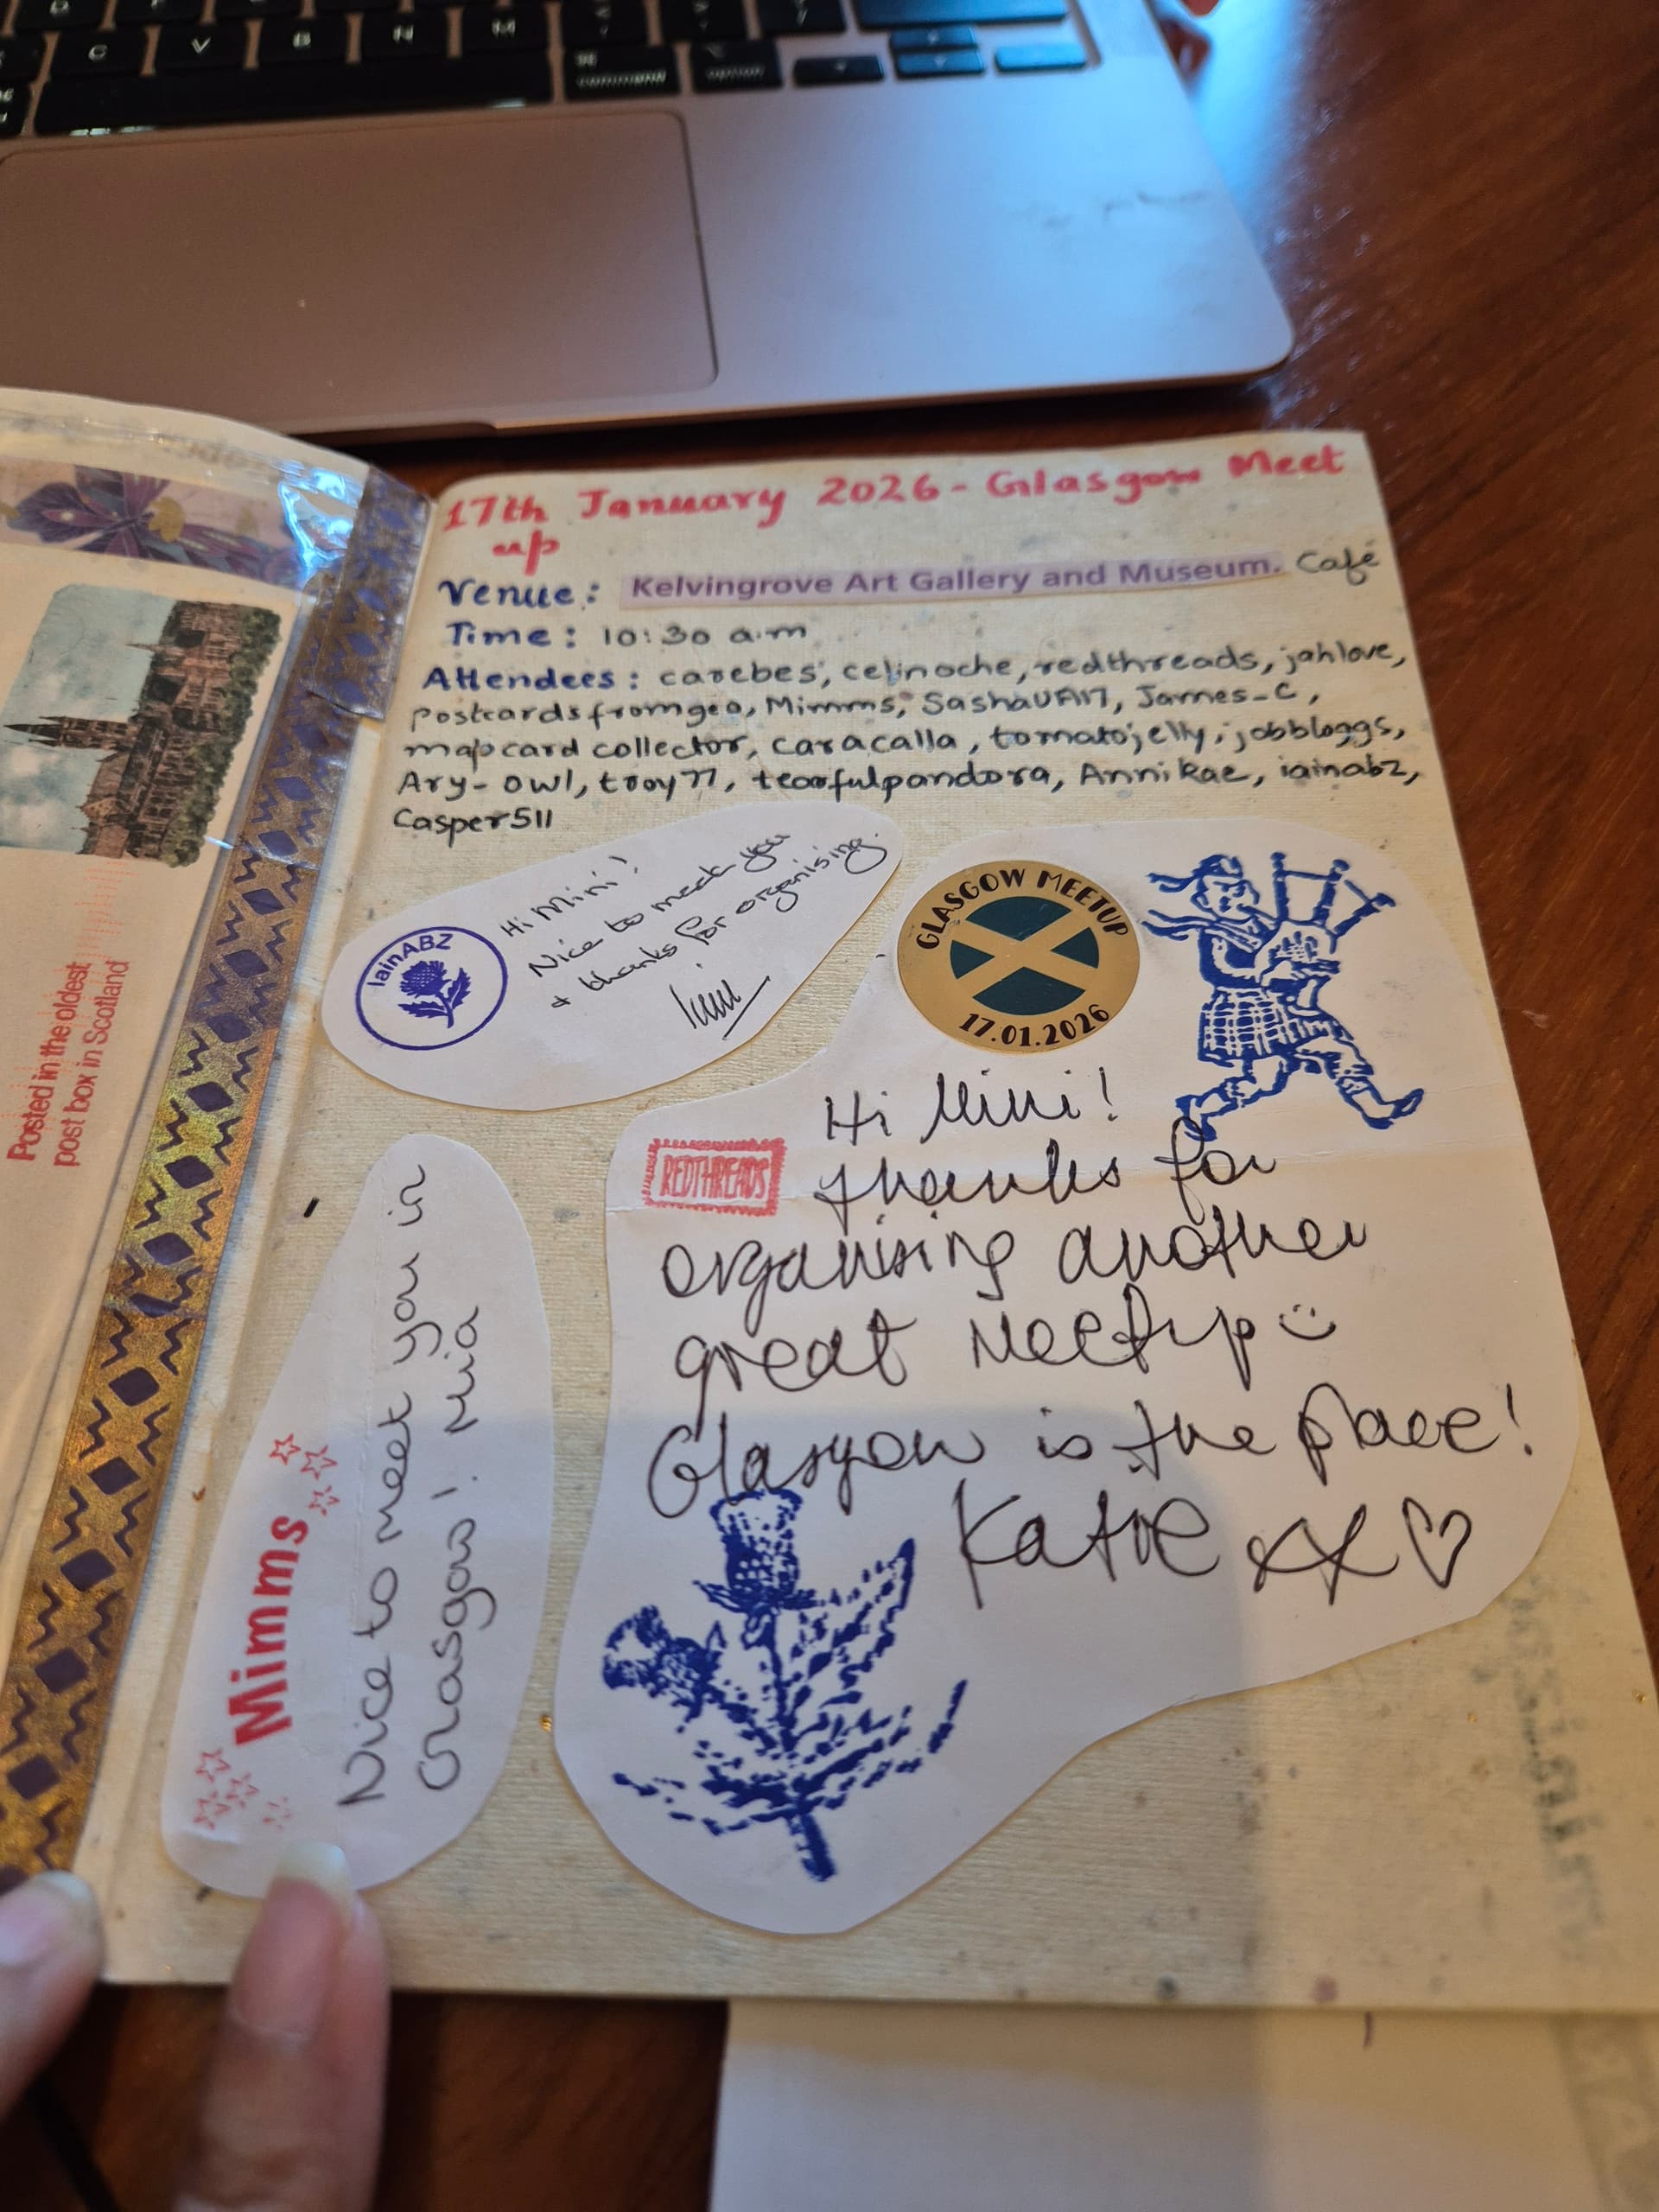 C V B N M
command option
17th January 2026 - Glasgow Meet
up
Venue: Kelvingrove Art Gallery and Museum. Café
Time: 10:30 a.m
Attendees: carebes, celinoche, redthreads, jahlove,
postcardsfromgeo, Mimms, SashaUA17, James-C,
mapcard collector, caracalla, tomatojelly, jobbloggs,
Ary-owl, troy77, tearfulpandora, Annikae, iainabz,
Casper511
IainABZ
Hi Mini!
Nice to meet you
+ thanks for organising.
Iain
GLASGOW MEETUP
17.01.2026
REDTHREADS
Hi Mini!
Thanks for
organising another
great Meetup
Glasgow is the place!
Katie xx
Mimms
Nice to meet you in
Glasgow! Mia
Posted in the oldest
post box in Scotland